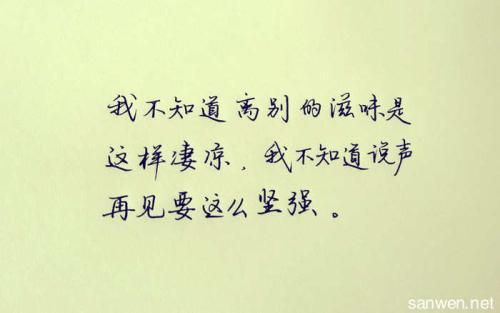 我不知道离别的滋味是
这样凄凉，我不知道说声
再见要这么坚强。
sanwen.net